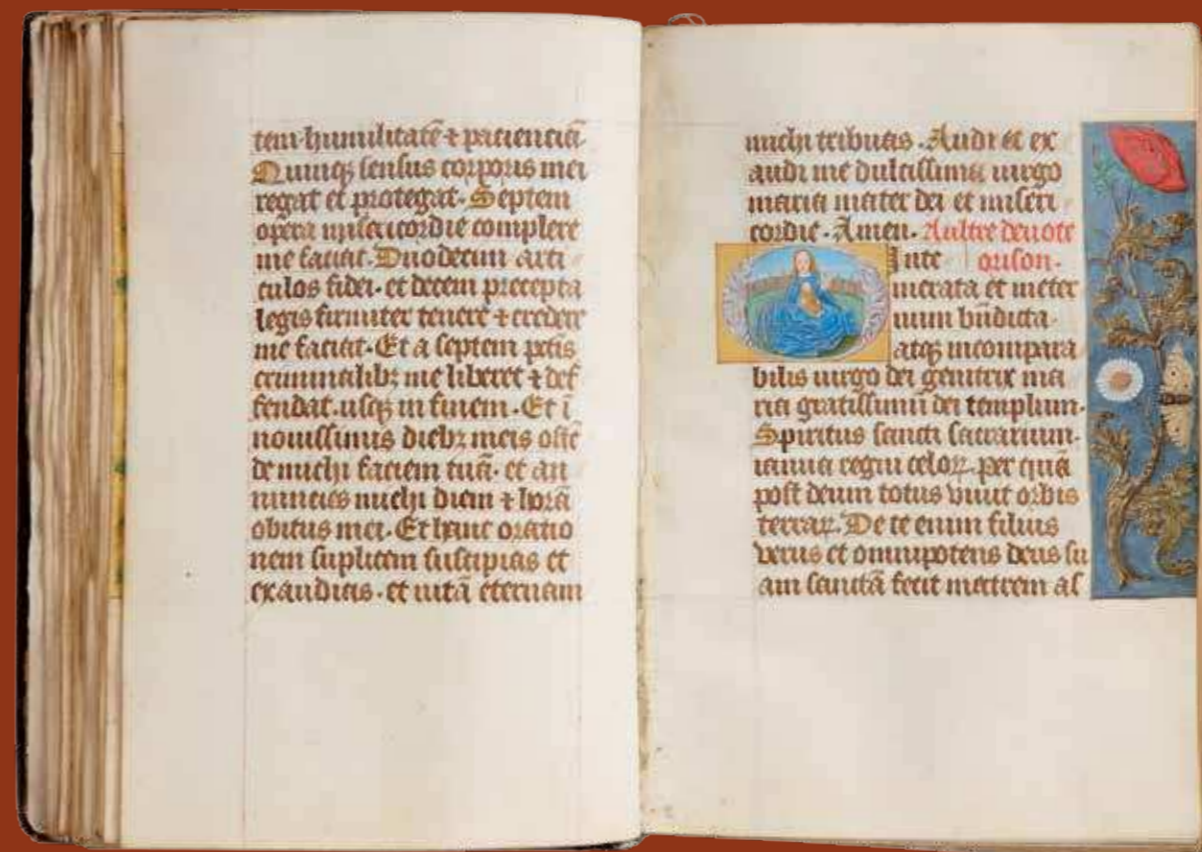 tem·humilitatē ⁊ pacienciā
Quinqȝ sensus corporis mei
regat et protegat. Septem
opera misericordie complere
me faciat. Duodecim arti
culos fidei. et decem precepta
legis firmiter tenere ⁊ credere
me faciat. Et a septem pctis
criminalibȝ me liberet ⁊ def
fendat. usqȝ in finem. Et ī
nouissimis diebȝ meis ostē
de michi faciem tuā. et an
nuncies michi diem ⁊ horā
obitus mei. Et hanc oratio
nem suplicem suscipias et
exaudias. et uitā eternam
michi tribuas. Audi et ex
audi me dulcissima uirgo
maria mater dei et miseri
cordie. Amen. Aultre deuote
Inte orison.
merata et ineter
num bn̄dicta.
atqȝ incompara
bilis uirgo dei genitrix ma
ria gratissimū dei templum.
Spiritus sancti sacrarium.
ianua regni celoꝝ. per quā
post deum totus viuit orbis
terraꝝ. De te enim filius
verus et omnipotens deus su
am sanctā fecit matrem as